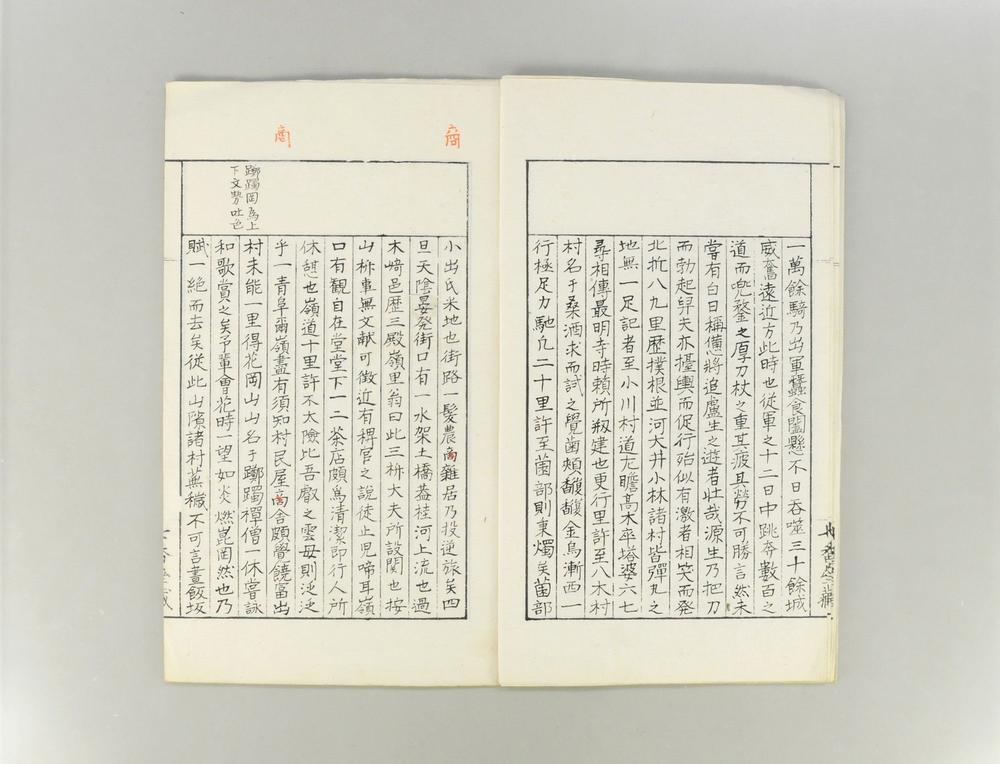 一萬餘騎乃出軍蠶食闔懸不日吞噬三十餘城
威奮遠近方此時也從軍之十二日中跳奔數百之
道而兜鍪之厚刀杖之重其疲且勞不可勝言然未
嘗有白日稱憊將追盧生之遊者壯哉源生乃把刀
而勃起舁夫亦擡輿而促行殆似有激者相笑而發
北折八九里歷撲根並河大井小林諸村皆彈丸之
地無一足記者至小川村道左瞻高木平塔婆六七
尋相傳最明寺時賴所剏建也更行里許至八木村
村名于桑酒求而試之覺齒頰馥馥金烏漸西一
行極足力馳凡二十里許至薗部則秉燭矣薗部
小出氏釆地也街路一髮農商雜居乃投逆旅矣四
旦天陰晏發街口有一水架土橋葢桂河上流也過
木﨑邑歷三殿嶺里翁曰此三枡大夫所設関也按
山枡事無文献可徵近有稗官之說徒止児啼耳嶺
口有觀自在堂堂下一二茶店頗爲清潔即行人所
休憩也嶺道十里許不太險比吾廠之雲母則泛泛
乎一青阜爾嶺盡有須知村民屋商舍頗覺饒富出
村未能一里得花岡山山名于躑躅禪僧一休嘗詠
和歌賞之矣予輩會花時一望如炎燃崑岡然也乃
賦一絕而去矣從此山隙諸村蕪穢不可言晝飯坂
商
商
躑躅岡爲上
下文勢吐色